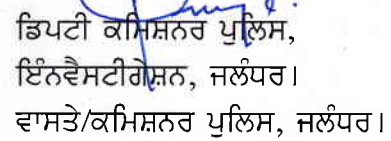 ਡਿਪਟੀ ਕਮਿਸ਼ਨਰ ਪੁਲਿਸ,
ਇੰਨਵੈਸਟੀਗੇਸ਼ਨ, ਜਲੰਧਰ।
ਵਾਸਤੇ/ਕਮਿਸ਼ਨਰ ਪੁਲਿਸ, ਜਲੰਧਰ।